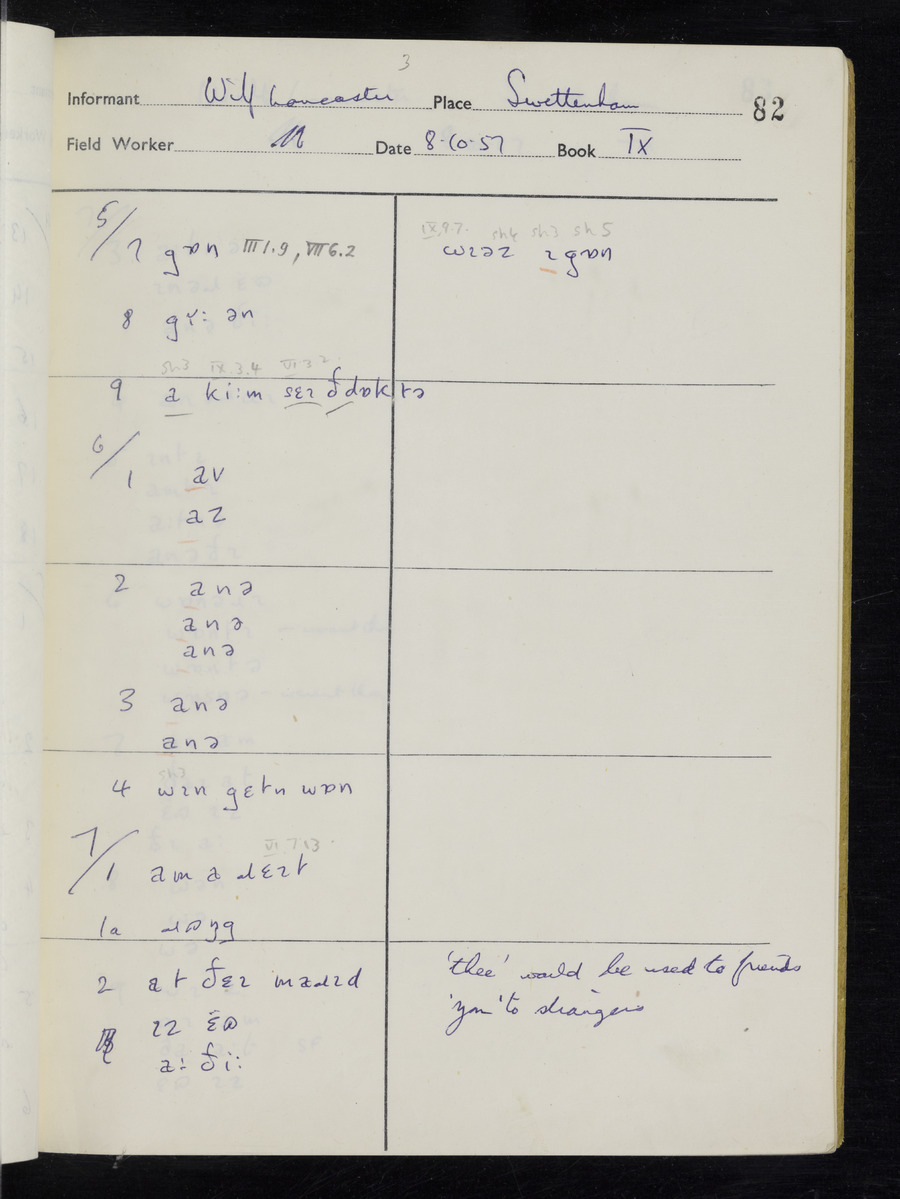 3
Informant Wilf Lancaster Place Swettenham 82
Field Worker Date 8-10-57 Book IX
5/7 gɒn III 1.9, VII 6.2
IX.9.7. sh4 sh3 sh5
wɪəz ɪ gɒn
8 gɪ: ən
sh3 IX.3.4 VI.3.2
9 a ki:m sɛɪ ð dɒktə
6/1 av
az
2 anə
anə
anə
3 anə
anə
sh3
4 wɪn gɛtn wɒn
VI.7.13
7/1 am a ɹɛɪt
1a ɹɒŋg
2 at ðɛɪ maɹɪd
'thee' would be used to friends
'you' to strangers
ɪz
a: ði: